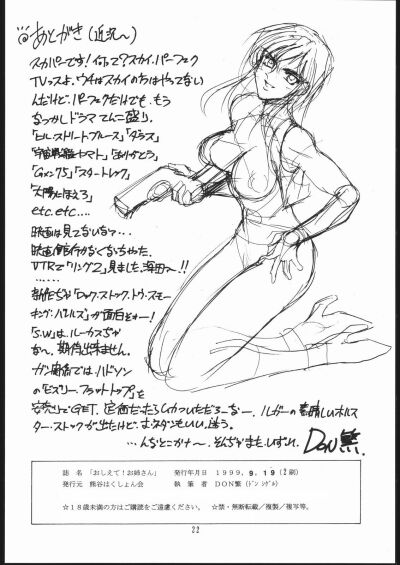 あとがき(近況〜)
スカパーです!何って?スカイパーフェク
TVっスよ。ウチはスカイのちはやってない
んだけど、パーフェクだけでも、もう
なつかしドラマてんこ盛り。
「ヒルストリートブルース」「ダラス」
「宇宙戦艦ヤマト」「ありがとう」
「Gメン75」「スタートレック」
「太陽にほえろ」
etc.etc....
映画は見てないな...
映画館行かなくなっちゃった。
VTRで「リング2」見ました、
......
新作ぢゃ「ロック、ストック、トゥ・スモー
キング・バレルズ」が面白そォー!
「S.W」はルーカスぢゃ
な〜。期待出来ません。
ガン関係では、ハドソン
の「ミズリー・フラットトップ」を
安売りでGET、定価だったらしかっただろーなー。ルガーの素晴しいホルス
ター・ストックが出たけど、
...んなとこかナ〜、そんぢゃまた、いずれ。DON繁.
誌 名 「おしえて!お姉さん」 発行年月日 1999.9.19(2刷)
発行元 熊谷はくしょん会 執 筆 者 DON繁(ドン シゲル)
☆18歳未満の方はご購読をご遠慮ください。 ☆禁・無断転載/複製/複写等。
22